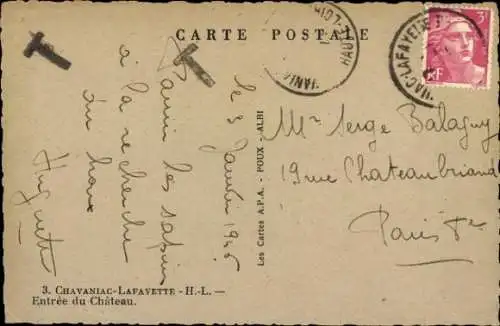 CARTE POSTALE
3F
RF
CHAVANIAC-LAFAYETTE
HAUTE-LOIRE
T
T
le 3 Janvier 1946
Parmi les sapins
à la recherche
du houx
Huguette
Mr Serge Balaguy
19 rue Chateaubriand
Paris
Les Cartes A.P.A. - POUX - ALBI
3. CHAVANIAC-LAFAYETTE - H.-L. —
Entrée du Château.